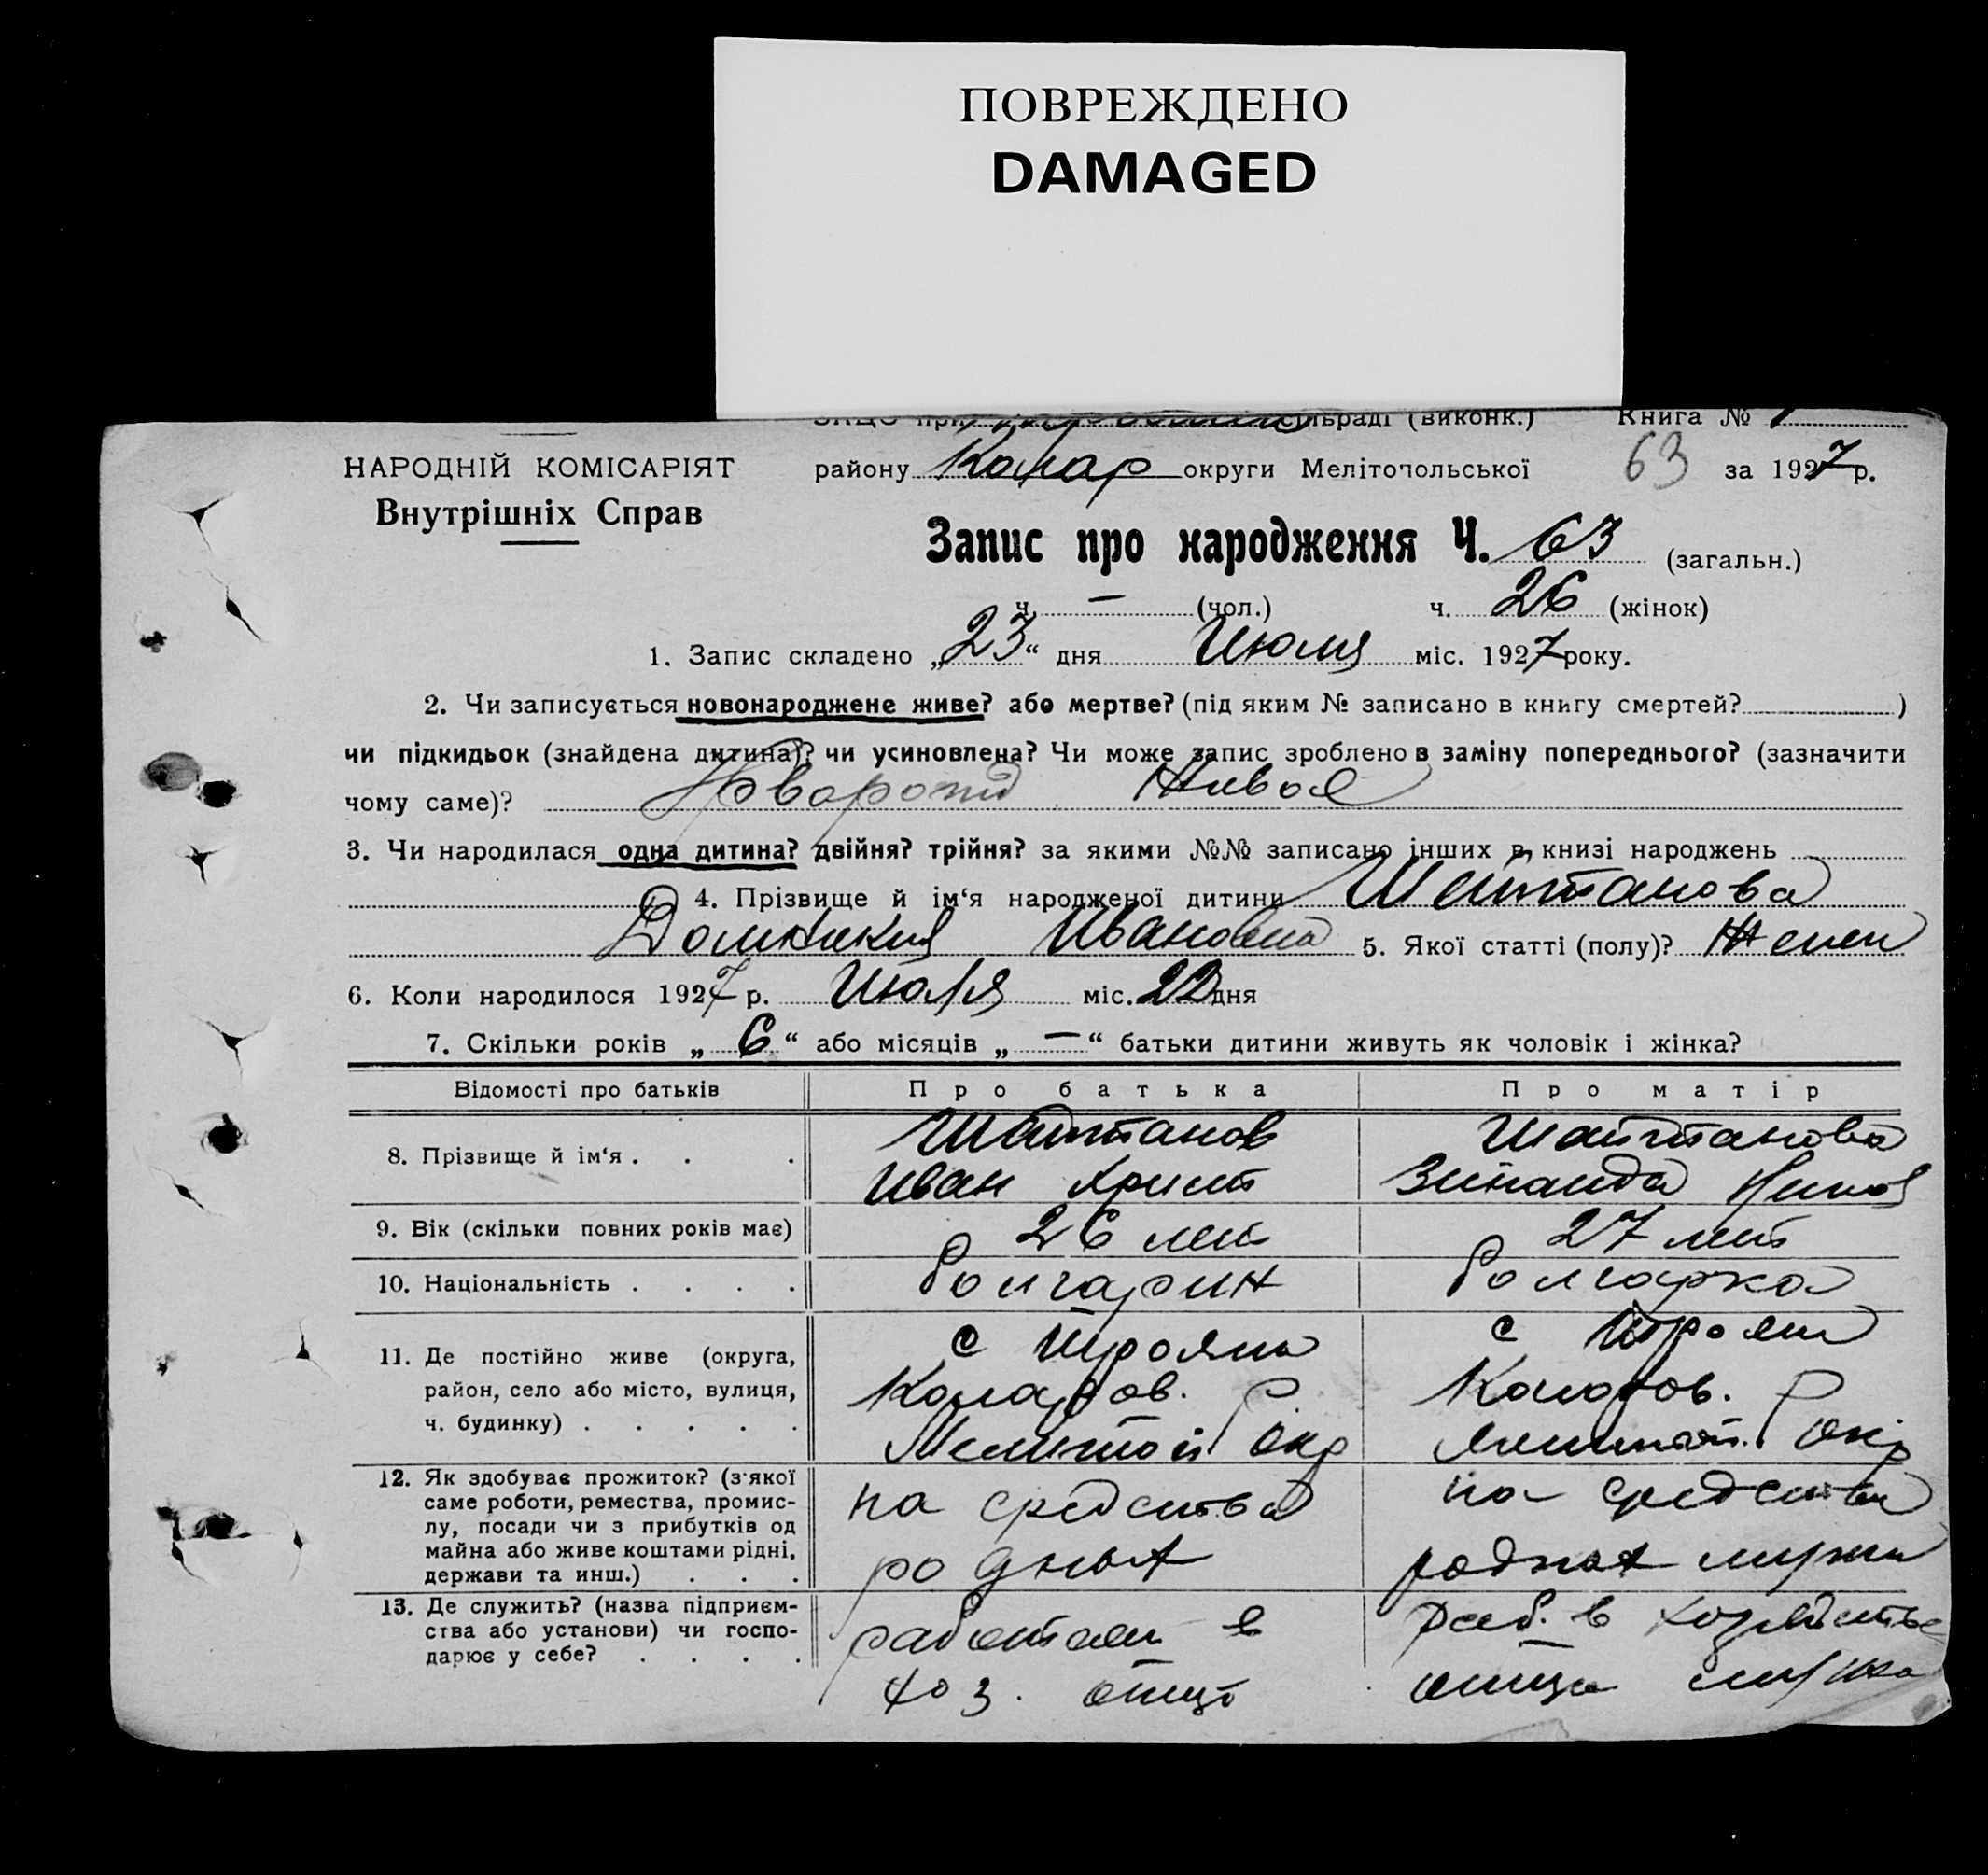 ПОВРЕЖДЕНО
DAMAGED
ЗАЦС при сільраді (виконк.) Книга № 1
НАРОДНІЙ КОМІСАРІЯТ
Внутрішніх Справ
району Колар округи Мелітопольської 63 за 1927 р.
Запис про народження Ч. 63 (загальн.)
ч. — (чол.) ч. 26 (жінок)
1. Запис складено „23“ дня Июля міс. 1927 року.
2. Чи записується новонароджене живе? або мертве? (під яким № записано в книгу смертей? )
чи підкидьок (знайдена дитина)? чи усиновлена? Чи може запис зроблено в заміну попереднього? (зазначити
чому саме)? Живое
3. Чи народилася одна дитина? двійня? трійня? за якими №№ записано інших в книзі народжень
4. Прізвище й ім‘я народженої дитини Шейтанова
Домникия Ивановна 5. Якої статті (полу)? Женск
6. Коли народилося 1927 р. Июля міс. 22 дня
7. Скільки років „6“ або місяців „—“ батьки дитини живуть як чоловік і жінка?
Відомості про батьків Про батька Про матір
8. Прізвище й ім‘я . . . Шайтанов Шайтанова
Иван Христ Зинаида Никол
9. Вік (скільки повних років має) 26 лет 27 лет
10. Національність . . . . болгарин болгарка
11. Де постійно живе (округа, с Трояны с Трояны
район, село або місто, вулиця, Коларов. Р Коларов. Р
ч. будинку) . . . . . Мелитоп Окр Мелитоп. Окр
12. Як здобуває прожиток? (з‘якої
саме роботи, ремества, промис- на средства на средства
лу, посади чи з прибутків од
майна або живе коштами рідні, родных родных мужа
держави та инш.) . . .
13. Де служить? (назва підприєм-
ства або установи) чи госпо- работает в раб. в хозяйстве
дарює у себе? . . . . хоз. отца отца мужа